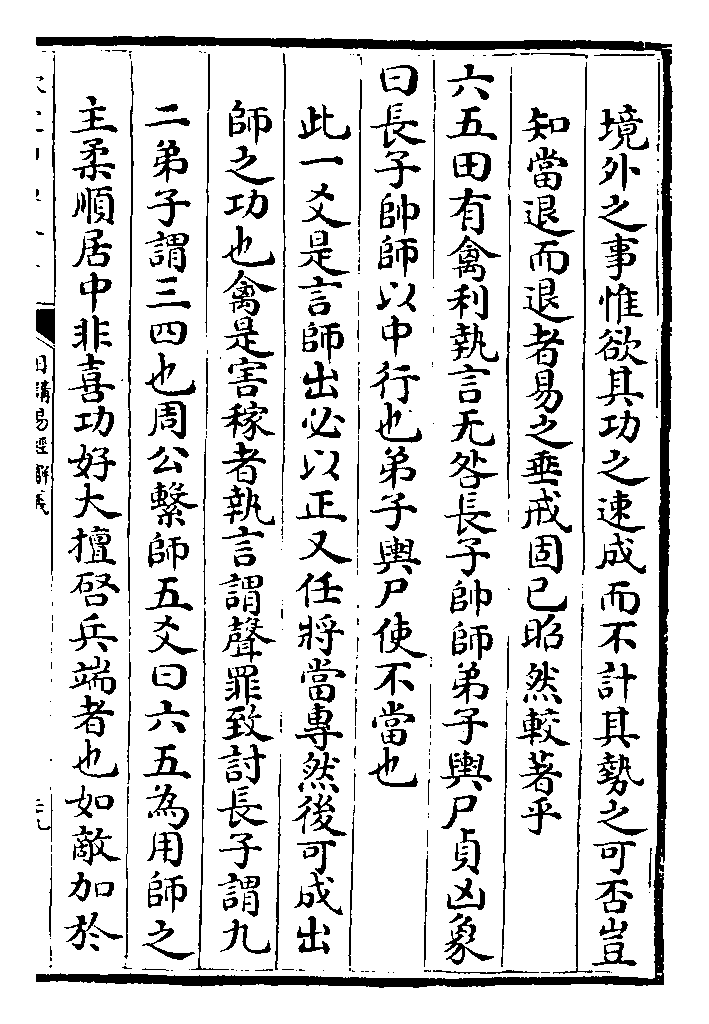 境外之事惟欲其功之速成而不計其勢之可否豈
知當退而退者易之垂戒固已昭然較著乎
六五田有禽利執言无咎長子帥師弟子輿尸貞凶象
曰長子帥師以中行也弟子輿尸使不當也
此一爻是言師出必以正又任將當專然後可成出
師之功也禽是害稼者執言謂聲罪致討長子謂九
二弟子謂三四也周公繫師五爻曰六五為用師之
主柔順居中非喜功好大擅啓兵端者也如敵加於
日講易經解義